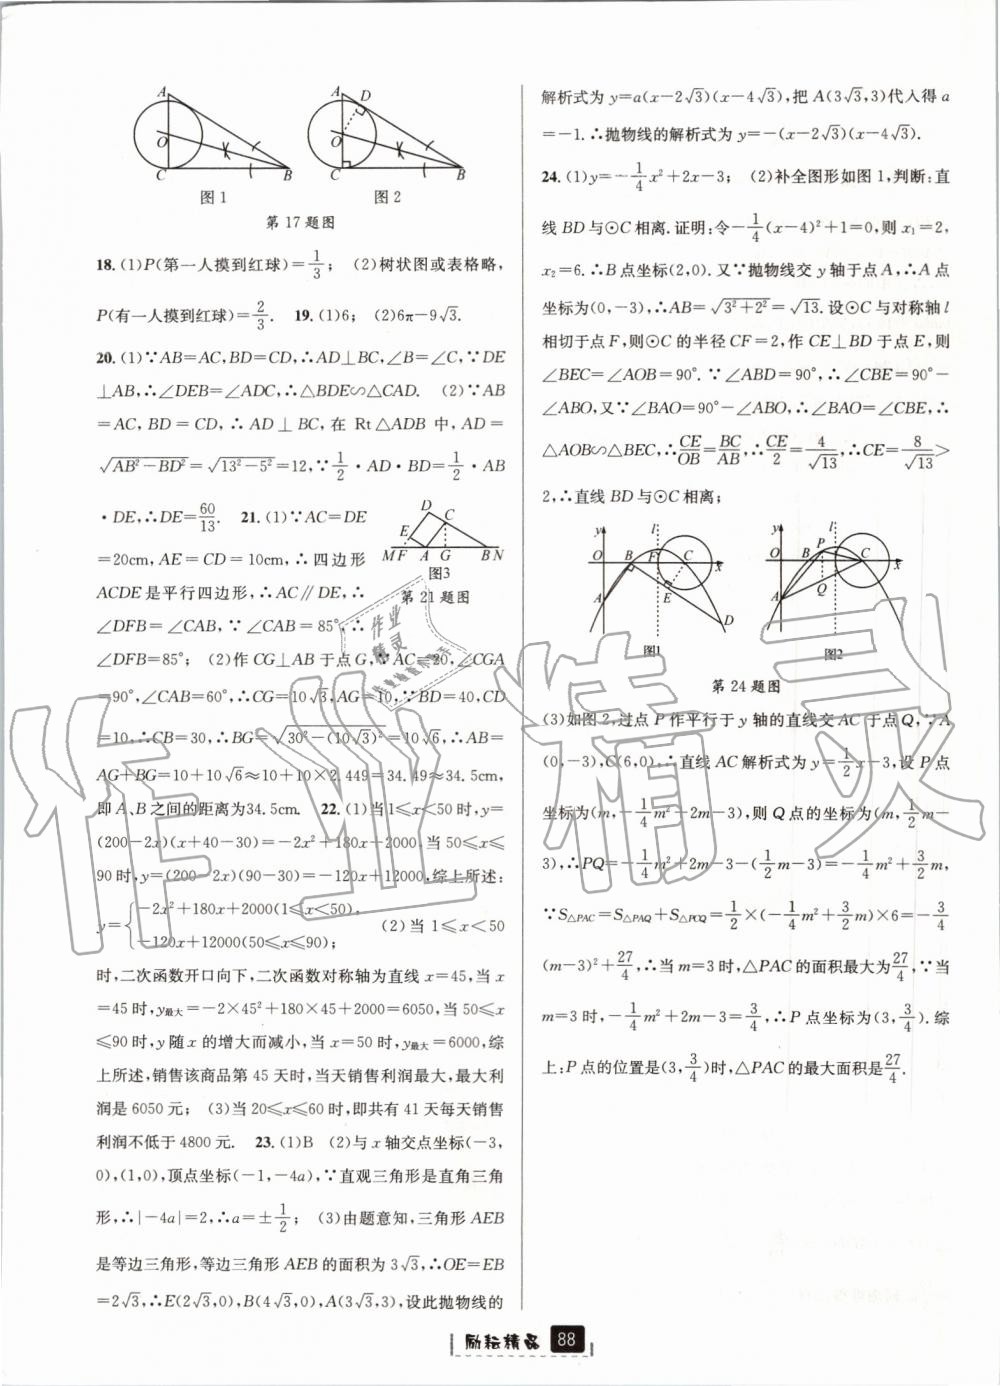 A
O
C
B
图1
A
D
O
C
B
图2
第17题图
18.(1)P(第一人摸到红球)=1/3; (2)树状图或表格略,
P(有一人摸到红球)=2/3. 19.(1)6; (2)6π-9√3.
20.(1)∵AB=AC,BD=CD,∴AD⊥BC,∠B=∠C,∵DE
⊥AB,∴∠DEB=∠ADC,∴△BDE∽△CAD. (2)∵AB
=AC,BD=CD,∴AD⊥BC,在Rt△ADB中,AD=
√(AB²-BD²)=√(13²-5²)=12,∵1/2·AD·BD=1/2·AB
·DE,∴DE=60/13. 21.(1)∵AC=DE
=20cm,AE=CD=10cm,∴四边形
ACDE是平行四边形,∴AC∥DE,∴
∠DFB=∠CAB,∵∠CAB=85°,∴
∠DFB=85°; (2)作CG⊥AB于点G,∵AC=20,∠CGA
D
C
E
M F A G B N
图3
第21题图
=90°,∠CAB=60°,∴CG=10√3,AG=10,∵BD=40,CD
=10,∴CB=30,∴BG=√(30²-(10√3)²)=10√6,∴AB=
AG+BG=10+10√6≈10+10×2.449=34.49≈34.5cm,
即A、B之间的距离为34.5cm. 22.(1)当1≤x<50时,y=
(200-2x)(x+40-30)=-2x²+180x+2000,当50≤x≤
90时,y=(200-2x)(90-30)=-120x+12000,综上所述:
y={-2x²+180x+2000(1≤x<50),
-120x+12000(50≤x≤90); (2)当1≤x<50
时,二次函数开口向下,二次函数对称轴为直线x=45,当x
=45时,y最大=-2×45²+180×45+2000=6050,当50≤x
≤90时,y随x的增大而减小,当x=50时,y最大=6000,综
上所述,销售该商品第45天时,当天销售利润最大,最大利
润是6050元; (3)当20≤x≤60时,即共有41天每天销售
利润不低于4800元. 23.(1)B (2)与x轴交点坐标(-3,
0),(1,0),顶点坐标(-1,-4a),∵直观三角形是直角三角
形,∴|-4a|=2,∴a=±1/2; (3)由题意知,三角形AEB
是等边三角形,等边三角形AEB的面积为3√3,∴OE=EB
=2√3,∴E(2√3,0),B(4√3,0),A(3√3,3),设此抛物线的
解析式为y=a(x-2√3)(x-4√3),把A(3√3,3)代入得a
=-1.∴抛物线的解析式为y=-(x-2√3)(x-4√3).
24.(1)y=-1/4x²+2x-3; (2)补全图形如图1,判断:直
线BD与⊙C相离.证明:令-1/4(x-4)²+1=0,则x₁=2,
x₂=6.∴B点坐标(2,0).又∵抛物线交y轴于点A,∴A点
坐标为(0,-3),∴AB=√(3²+2²)=√13.设⊙C与对称轴l
相切于点F,则⊙C的半径CF=2,作CE⊥BD于点E,则
∠BEC=∠AOB=90°.∵∠ABD=90°,∴∠CBE=90°-
∠ABO,又∵∠BAO=90°-∠ABO,∴∠BAO=∠CBE,∴
△AOB∽△BEC,∴CE/OB=BC/AB,∴CE/2=4/√13,∴CE=8/√13>
2,∴直线BD与⊙C相离;
y l
O B F C x
E
A
D
图1
y l
O B P C x
Q
A
图2
第24题图
(3)如图2,过点P作平行于y轴的直线交AC于点Q,∵A
(0,-3),C(6,0),∴直线AC解析式为y=1/2x-3,设P点
坐标为(m,-1/4m²+2m-3),则Q点的坐标为(m,1/2m-
3),∴PQ=-1/4m²+2m-3-(1/2m-3)=-1/4m²+3/2m,
∵S△PAC=S△PAQ+S△PCQ=1/2×(-1/4m²+3/2m)×6=-3/4
(m-3)²+27/4,∴当m=3时,△PAC的面积最大为27/4,∵当
m=3时,-1/4m²+2m-3=3/4,∴P点坐标为(3,3/4).综
上:P点的位置是(3,3/4),△PAC的最大面积是27/4.
作业精灵
励耘精品 88